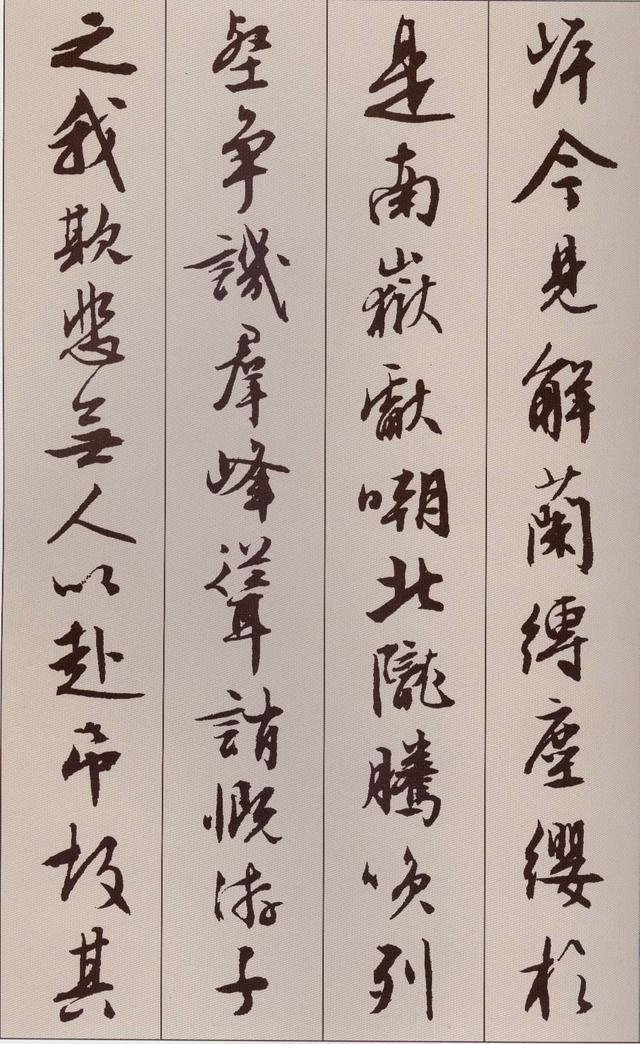 岸今見解蘭縛塵纓於
是南嶽獻嘲北隴騰咲列
壑爭譏羣峰聳誚慨游子
之我欺悲無人以赴吊故其